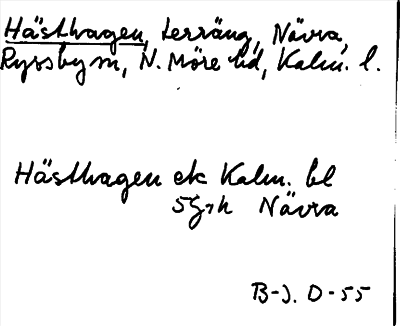 Hästhagen, terräng, Nävra,
Ryssby sn, N. Möre hd, Kalm. l.
Hästhagen ek Kalm. bl
5G7h Nävra
B-J. D-55